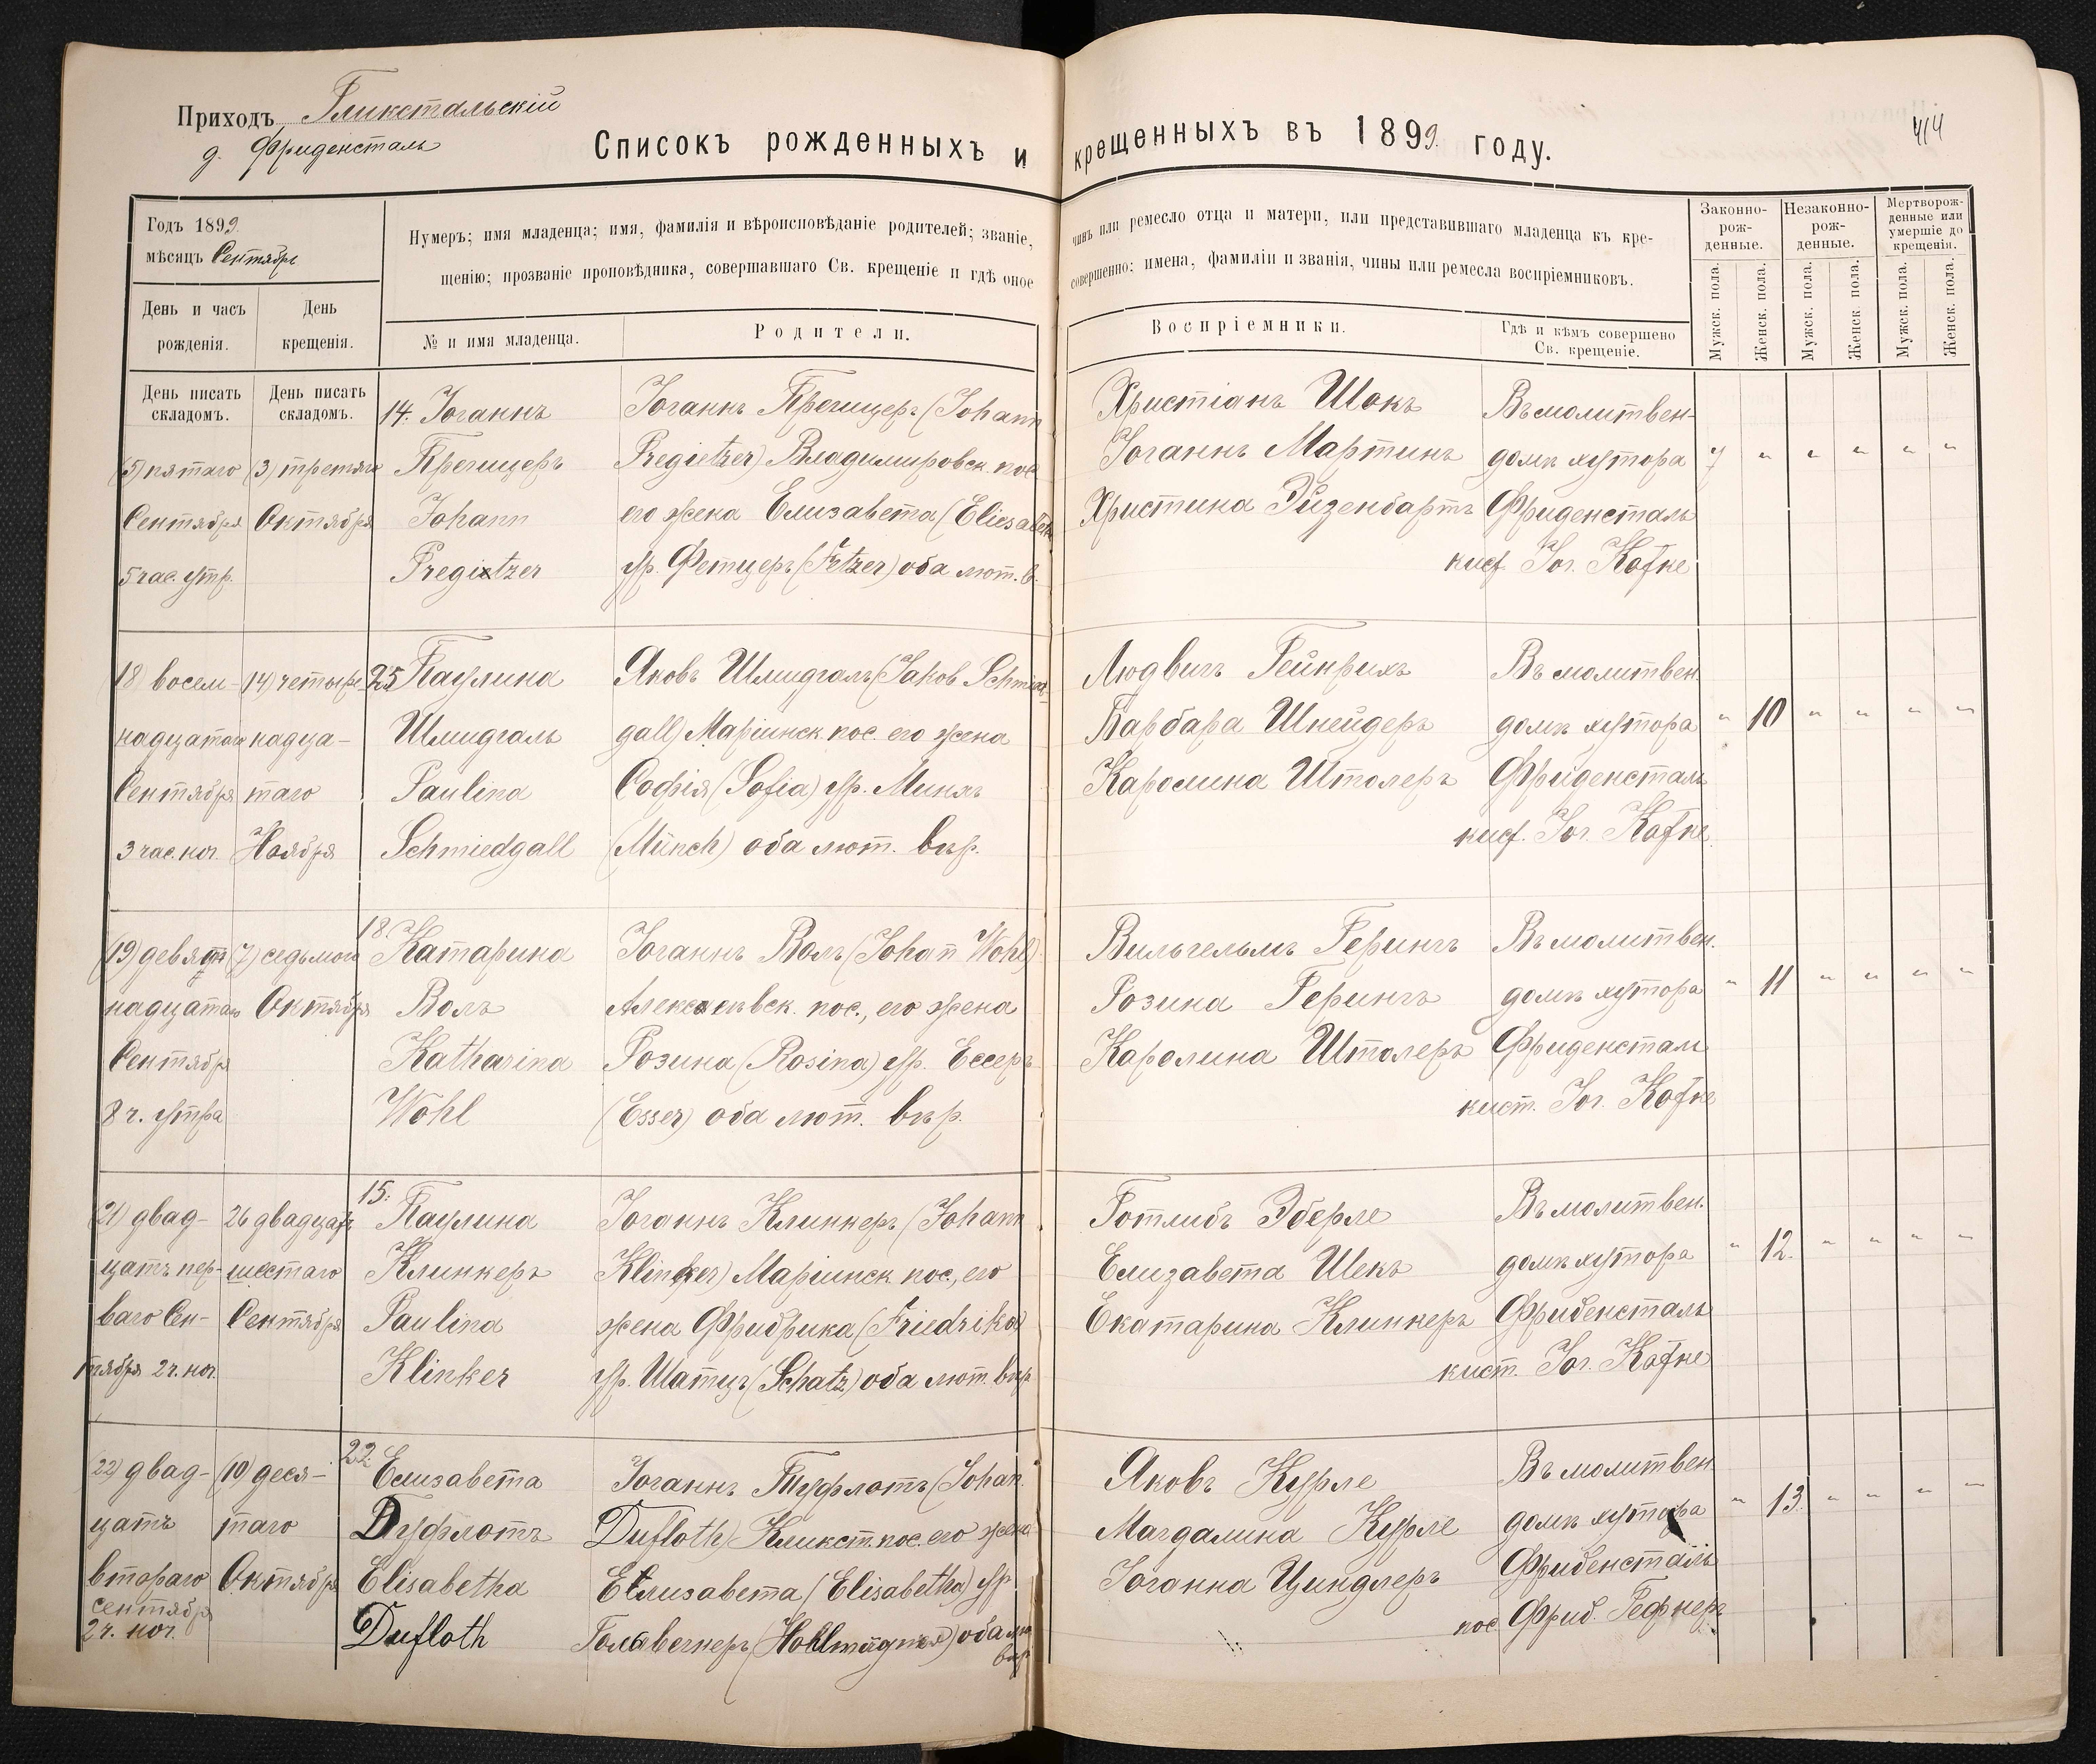 Приходъ Гликстальскій
д. Фриденсталь
Списокъ рожденныхъ и крещенныхъ въ 1899 году.
414
Годъ 1899
мѣсяцъ Сентябрь
Нумеръ; имя младенца; имя, фамилія и вѣроисповѣданіе родителей; званіе, чинъ или ремесло отца и матери, или представившаго младенца къ кре-
щенію; прозваніе проповѣдника, совершавшаго Св. крещеніе и гдѣ оное совершенно; имена, фамиліи и званія, чины или ремесла воспріемниковъ.
Законно-
рож-
денные.
Незаконно-
рож-
денные.
Мертворож-
денные или
умершіе до
крещенія.
День и часъ
рожденія.
День
крещенія.
№ и имя младенца.
Родители.
Воспріемники.
Гдѣ и кѣмъ совершено
Св. крещеніе.
Мужск. пола.
Женск. пола.
Мужск. пола.
Женск. пола.
Мужск. пола.
Женск. пола.
День писать
складомъ.
День писать
складомъ.
(5) пятаго
Сентября
5 час. утр.
(3) третяго
Октября
14. Іоганнъ
Прегицеръ
Johann
Pregietzer
Іоганнъ Прегицеръ (Johann
Pregietzer) Владимировск. пос
его жена Елизавета (Eliesabeth
ур. Фетцеръ (Fetzer) оба лют. в.
Христіанъ Шокъ
Іоганнъ Мартинъ
Христина Эйзенбартъ
Въ молитвен-
домѣ хутора
Фриденсталь
кист. Іог. Кафке
7 " " " " "
18) восем-
надцатаго
Сентября
3 час. ноч.
14) четыре-
надца-
таго
Ноября
25 Паулина
Шмидгаль
Paulina
Schmiedgall
Яковъ Шмидгаль (Jakob Schmied-
gall) Маріинск. пос. его жена
Софія (Sofia) ур. Минхъ
(Münch) оба лют. вѣр.
Людвигъ Гейнрихъ
Барбара Шнейдеръ
Каролина Штолеръ
Въ молитвен.
домѣ хутора
Фриденсталь
кист. Іог. Кафке
" 10 " " " "
(19) девят-
надцатаго
Сентября
8 ч. утра
(7) седьмого
Октября
18. Катарина
Воль
Katharina
Wohl
Іоганнъ Воль (Johan Wohl)
Алексѣевск. пос., его жена
Розина (Rosina) ур. Ессеръ
(Esser) оба лют. вѣр.
Вильгельмъ Герингъ
Розина Герингъ
Каролина Штолеръ
Въ молитвен.
домѣ хутора
Фриденсталь
кист. Іог. Кафке
" 11 " " " "
(21) двад-
цать пер-
ваго Сен-
тября 2 ч. ноч.
26 двадцать
шестаго
Сентября
15. Паулина
Клинкеръ
Paulina
Klinker
Іоганнъ Клинкеръ (Johann
Klinker) Маріинск. пос., его
жена Фридрика (Friedrika)
ур. Шатцъ (Schatz) оба лют. вѣр
Готлибъ Эберле
Елизавета Шекъ
Екатарина Клинкеръ
Въ молитвен.
домѣ хутора
Фриденсталь
кист. Іог. Кафке
" 12. " " " "
(22) двад-
цать
втораго
сентября
2 ч. ноч.
(10) деся-
таго
Октября
22. Елизавета
Дуфлотъ
Elisabetha
Dufloth
Іоганнъ Туфлотъ (Johan
Dufloth) Кликст. пос. его жена
Елизавета (Elisabetha) ур
оба лют
вѣр
Яковъ Курле
Магдалина Курле
Іоганна Циндлеръ
Въ молитвен.
домѣ хутора
Фриденсталь
пос. Фрид. Гефнеръ
" 13. " " " "